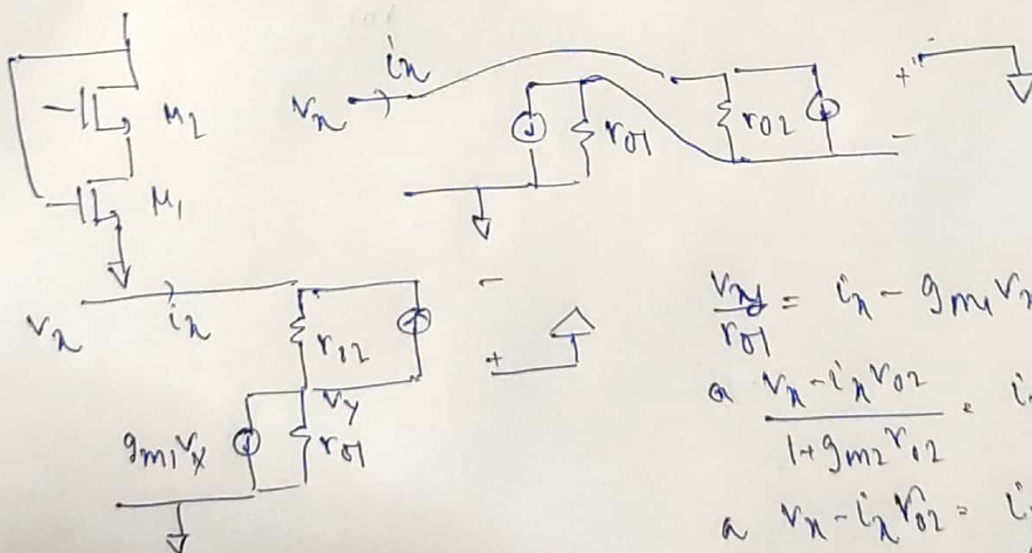 M2
M1
Vx
ix
r01
r02
+
−
Vx
ix
r02
Vy
gm1 Vx
r01
−
+
Vxy/r01 = ix − gm1 Vx
a (Vx − ix r02)/(1 + gm2 r02) = i
a Vx − ix r02 = i